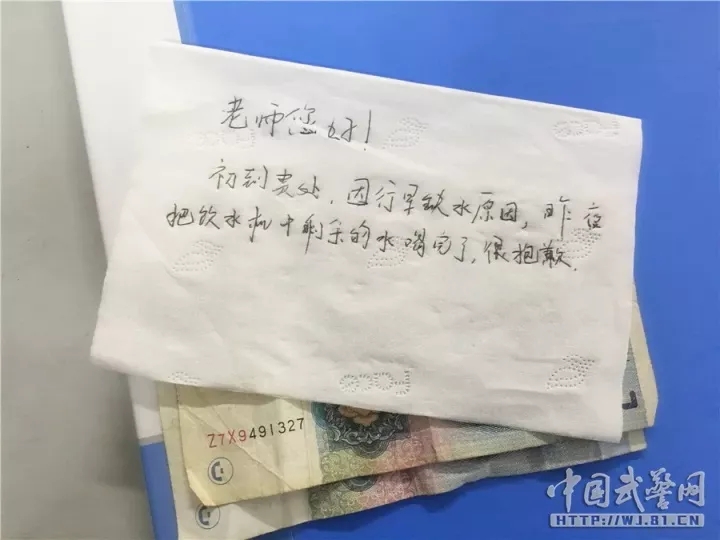 老师您好！
初到贵处，因行军缺水原因，昨夜
把饮水机中剩余的水喝完了，很抱歉.
Z7X9491327
中国武警网
HTTP://WJ.81.CN